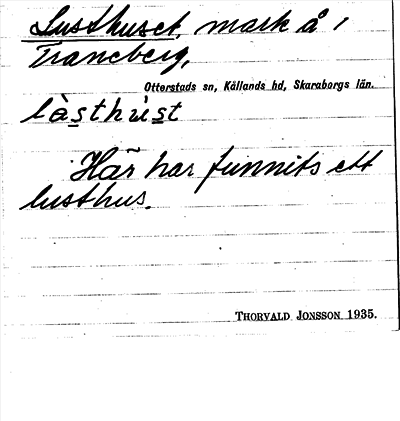 Lusthuset, mark å 1
Traneberg,
Otterstads sn, Kållands hd, Skaraborgs län.
làsthùst
Här har funnits ett
lusthus.
THORVALD JONSSON 1935.